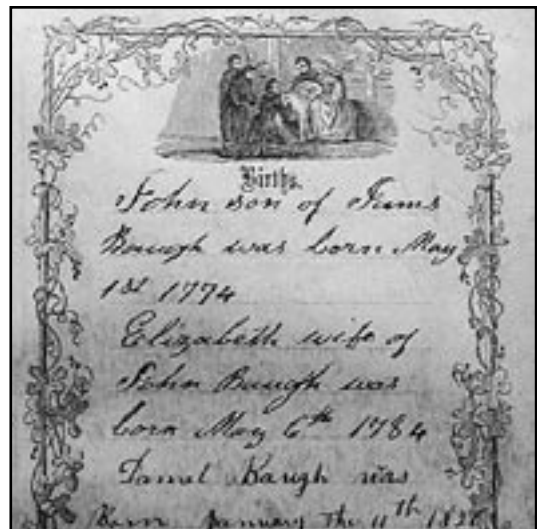 Births.
John son of Jums
Baugh was born May
1st 1774
Elizabeth wife of
John Baugh was
born May 6th 1784
Baugh was
Born January the 11th